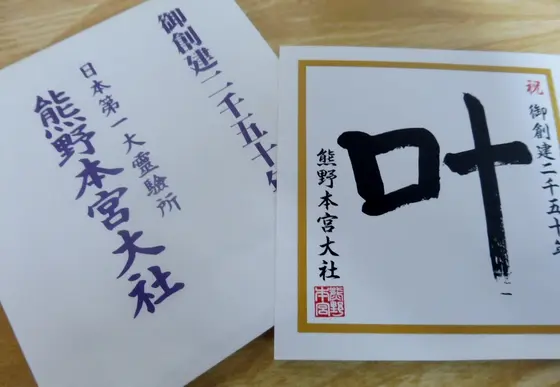 御創建二千五十年
日本第一大霊験所
熊野本宮大社
祝 御創建二千五十年
叶
熊野本宮大社
熊野
本宮